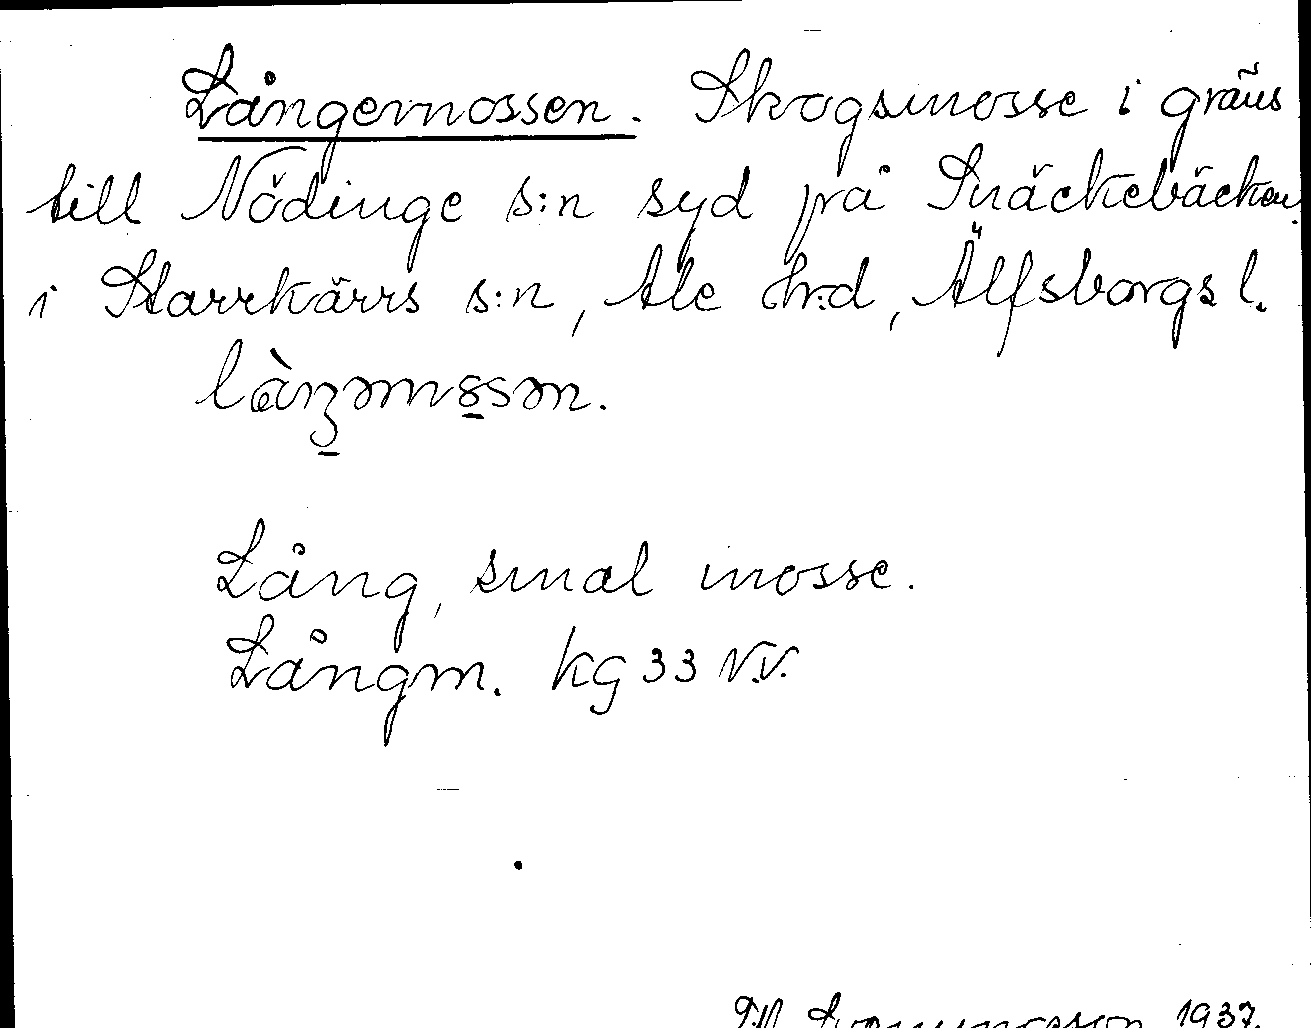 Långemossen. Skogsmosse i gräns
till Nödinge s:n syd på Snäckebäcken
i Starrkärrs s:n, Ale hrd, Älfsborgs l.
Lång, smal mosse.
Långm. kg 33 N.V.
1937.